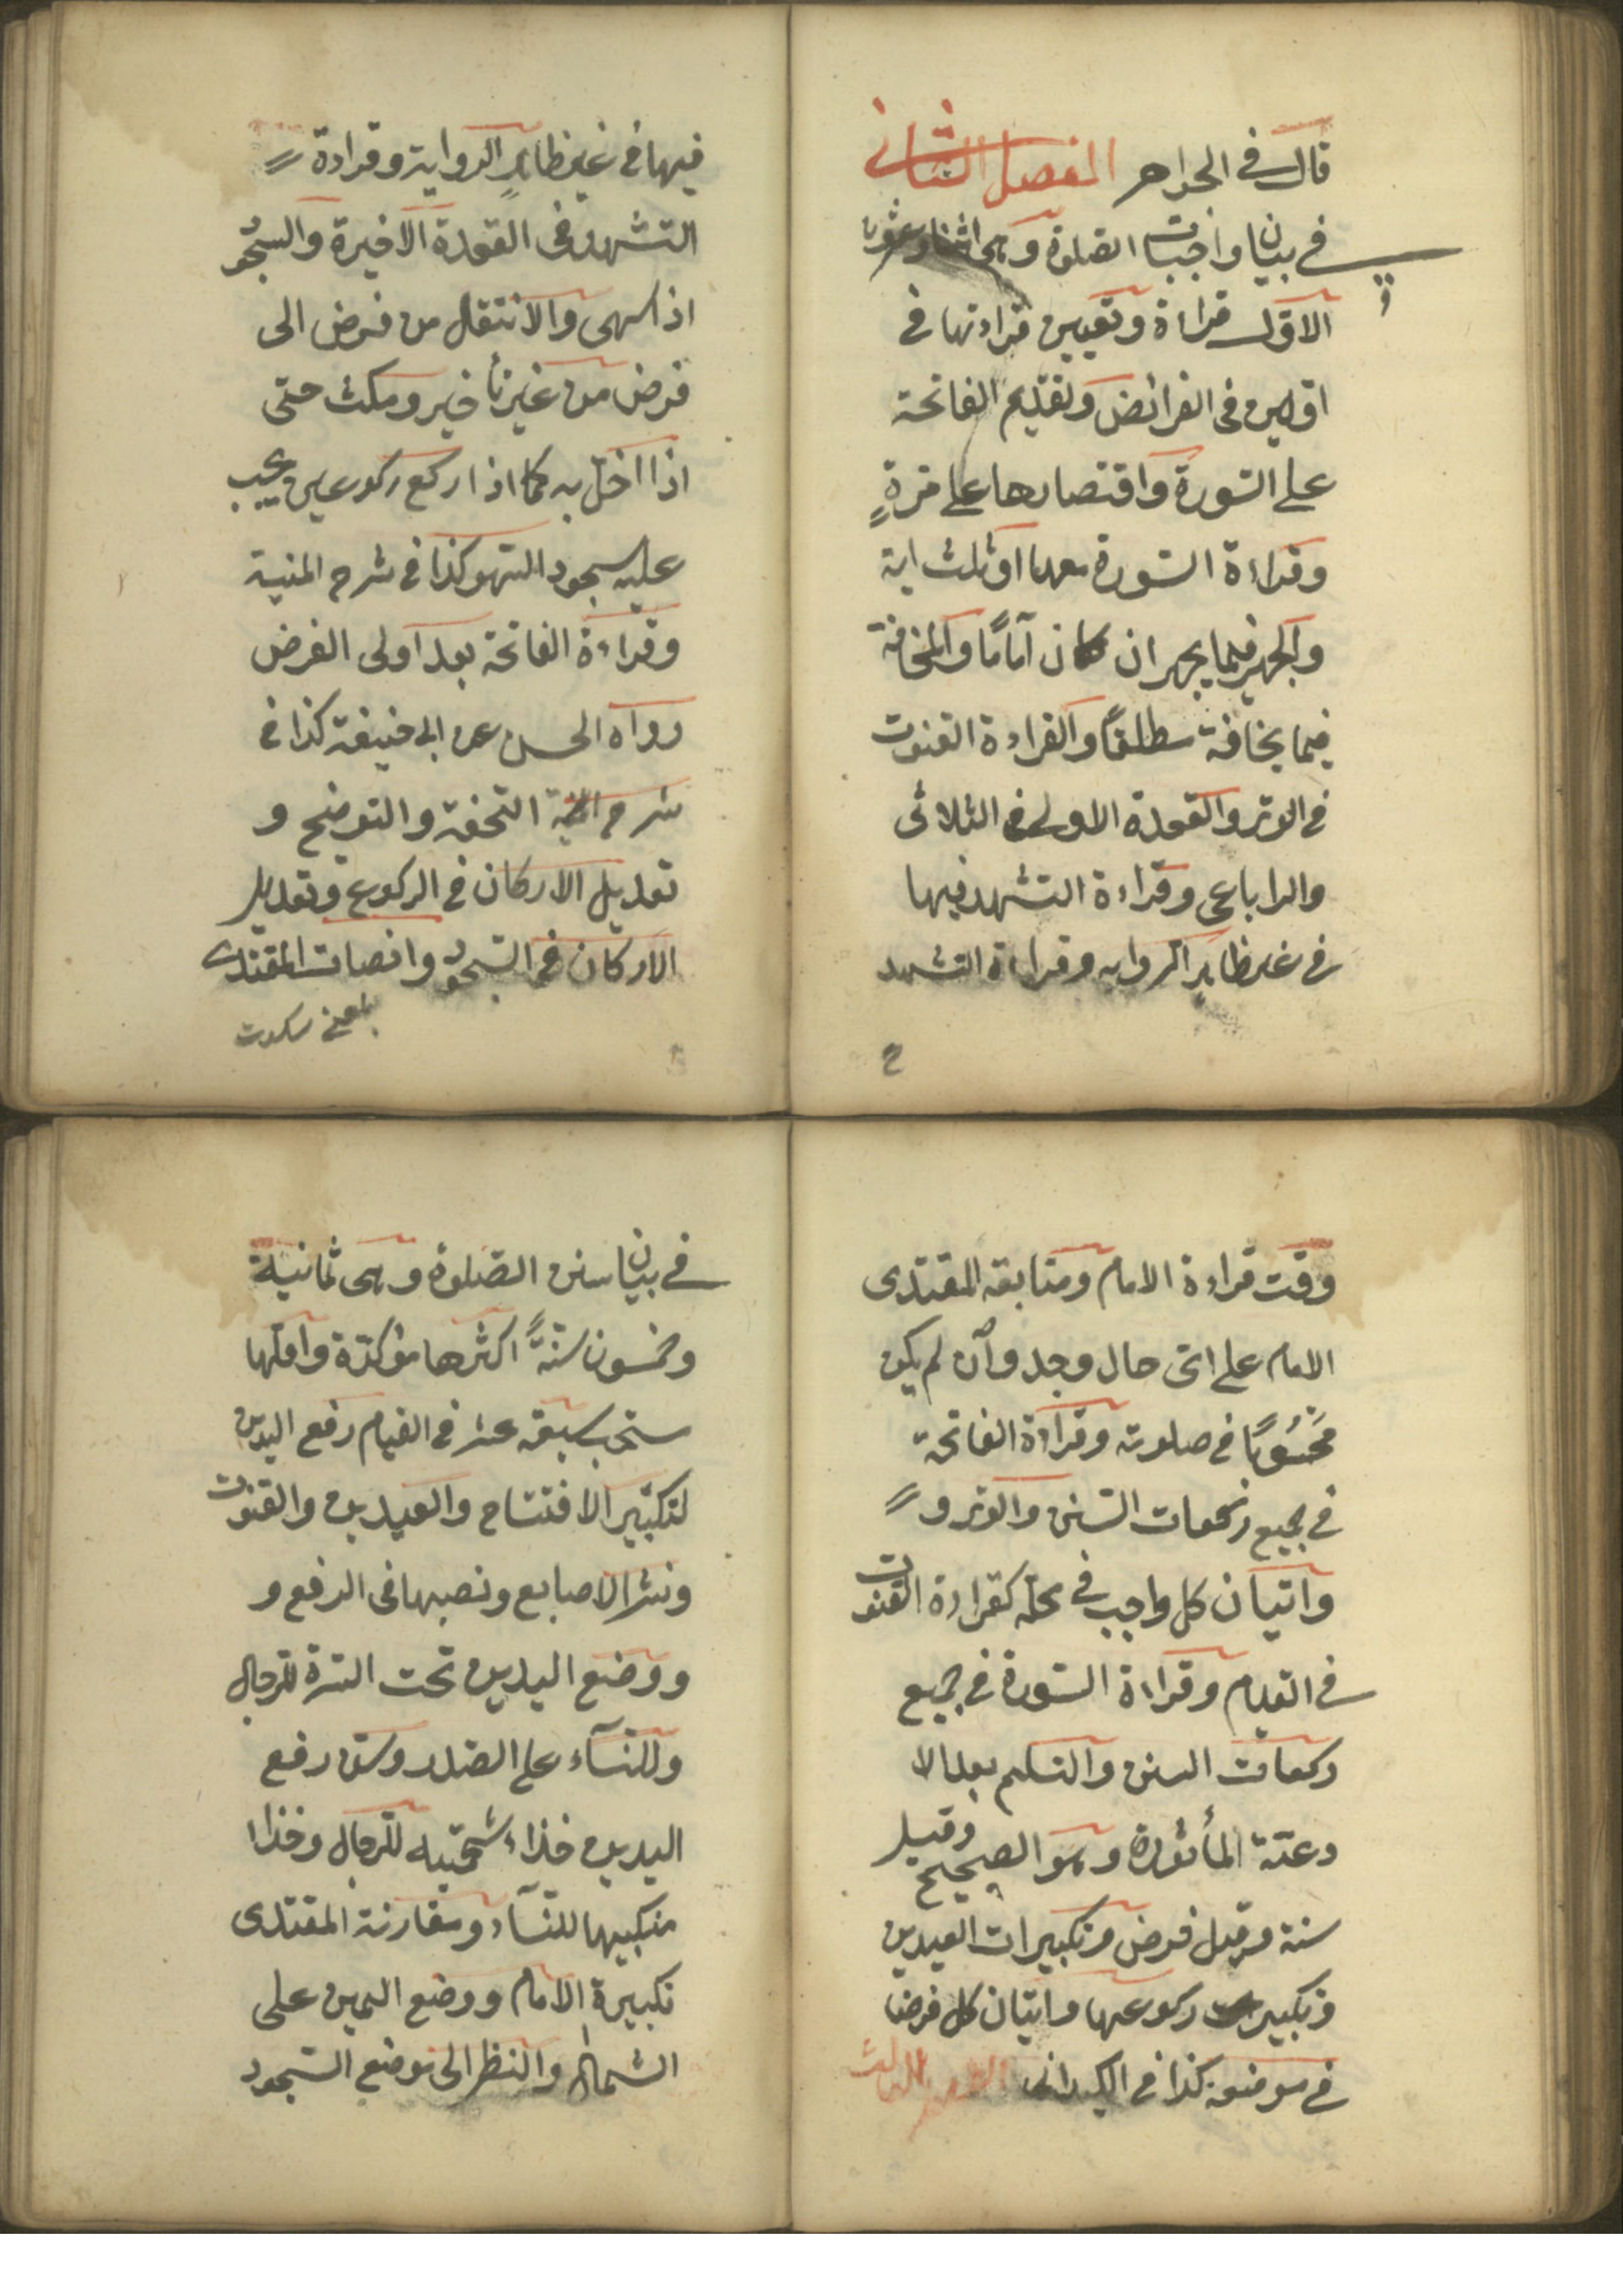 قال في الجواهر الفصل الثاني
في بيان واجبات الصلوة وهى اثنا وعشرون
الاوّل قراءة وتعيين قراءتها في
اوليين فى الفرائض وتقديم الفاتحة
على السّورة واقتصارها على مرةٍ
وقراءة السّورة معها او ثلث اية
والجهر فيما يجهر ان كان آماماً والمخافة
فيما يخافة مطلقاً والقراءة القنوت
في الوتر والقعدة الاولى في الثلاثى
والراباعى وقراءة التشهد فيها
في غير ظاهر الرواية وقراءة التشهد
2
فيها في غير ظاهر الرواية وقراءة
التشهد فى القعدة الاخيرة والسجود
اذا سهى والانتقال من فرض الى
فرض من غير تأخير ومكث حتى
اذا اخلّ به كما اذا ركع ركوعين يجب
عليه سجود السّهو كذا في شرح المنية
وقراءة الفاتحة بعد اولى الفرض
رواه الحسن عن ابى حنيفة كذا في
شرح التحفة والتوضيح و
تعديل الاركان في الركوع وتعديل
الاركان في السّجود وانصات المقتدى
يعني سكوت
وقت قراءة الامام ومتابعة المقتدى
الامام على اىّ حال وجد وآن لم يكن
مَحْسُوبًا في صلوته وقراءة الفاتحة
في جميع ركعات السّنن والوتر و
واتيان كل واجب في محلّه كقراءة القنوت
في القيام وقراءة السّورة في جميع
ركعات السنن والتسليم بعد الا
دعيّة المأثورة وهو الصحيح وقيل
سنة وقيل فرض وتكبيرات العيدين
وتكبيرات ركوعها واتيان كل فرض
في موضعه كذا في الكيدانى الفصل الثالث
في بيان سنن الصّلوة وهى ثمانية
وخمسون سنّةً اكثرها مؤكدّة واقلّها
ستحب سبعة عشر في القيام رفع اليدين
لتكبير الافتتاح والعيدين والقنوت
ونشر الاصابع ونصبها فى الرفع و
ووضع اليدين تحت السّرة للرجال
وللنسآء على الصّدر وسنن رفع
اليدين حذاء شحمتيه للرجال وحذا
منكبيها للنسآء ومقارنة المقتدى
تكبيرة الامام ووضع اليمين على
الشمال والنظر الى موضع السّجود